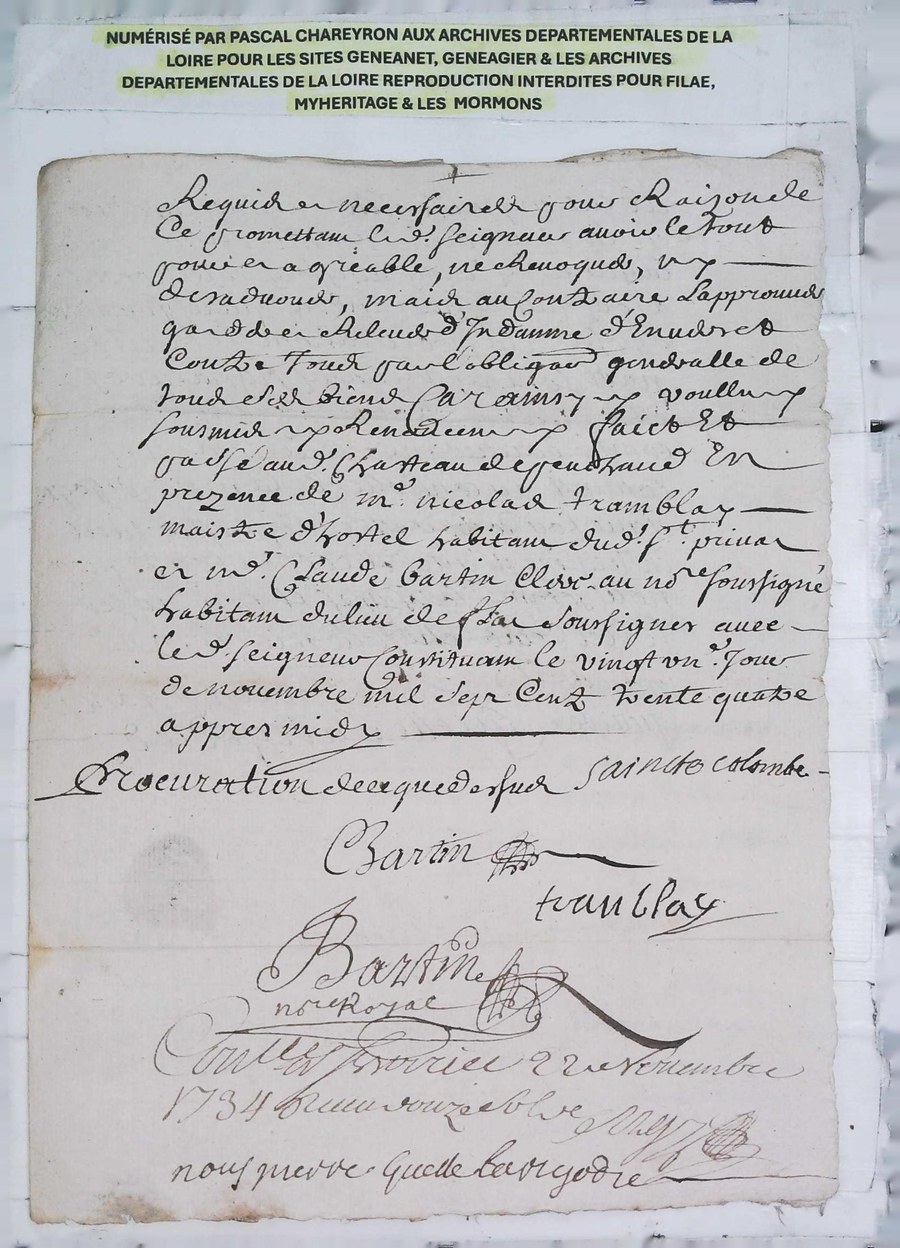 NUMÉRISÉ PAR PASCAL CHAREYRON AUX ARCHIVES DEPARTEMENTALES DE LA
LOIRE POUR LES SITES GENEANET, GENEAGIER & LES ARCHIVES
DEPARTEMENTALES DE LA LOIRE REPRODUCTION INTERDITES POUR FILAE,
MYHERITAGE & LES MORMONS
Requis et necessaires pour Raizon de
Ce promettant led. seigneur avoir le tout
pour et agreable, ne Revoquer, ny
desadvouer, mais au Contraire L'approuver
garder et Relever d'Indamne d'Envers et
Contre Tous par l'obligaõn generalle de
tous ses biens Car ainsy voullu
sousmis Renoncent faict Et
passé aud. Chasteau de En
prezence de mr. nicolas tramblay
maistre d'hostel habitant dud. st. privat
et me. Claude bartin Clerc au nore soussigné
habitant du lieu de soussignes avec
led. seigneur Constituant le vingt vn. Jour
de novembre mil sept Cent trente quatre
appres midy
Procuration des que dessus saincte colombe
Bartin
tramblay
Bartin
nore Royal
Conlle a 22e Novembre
1734 Receu douze sols
nous pierre